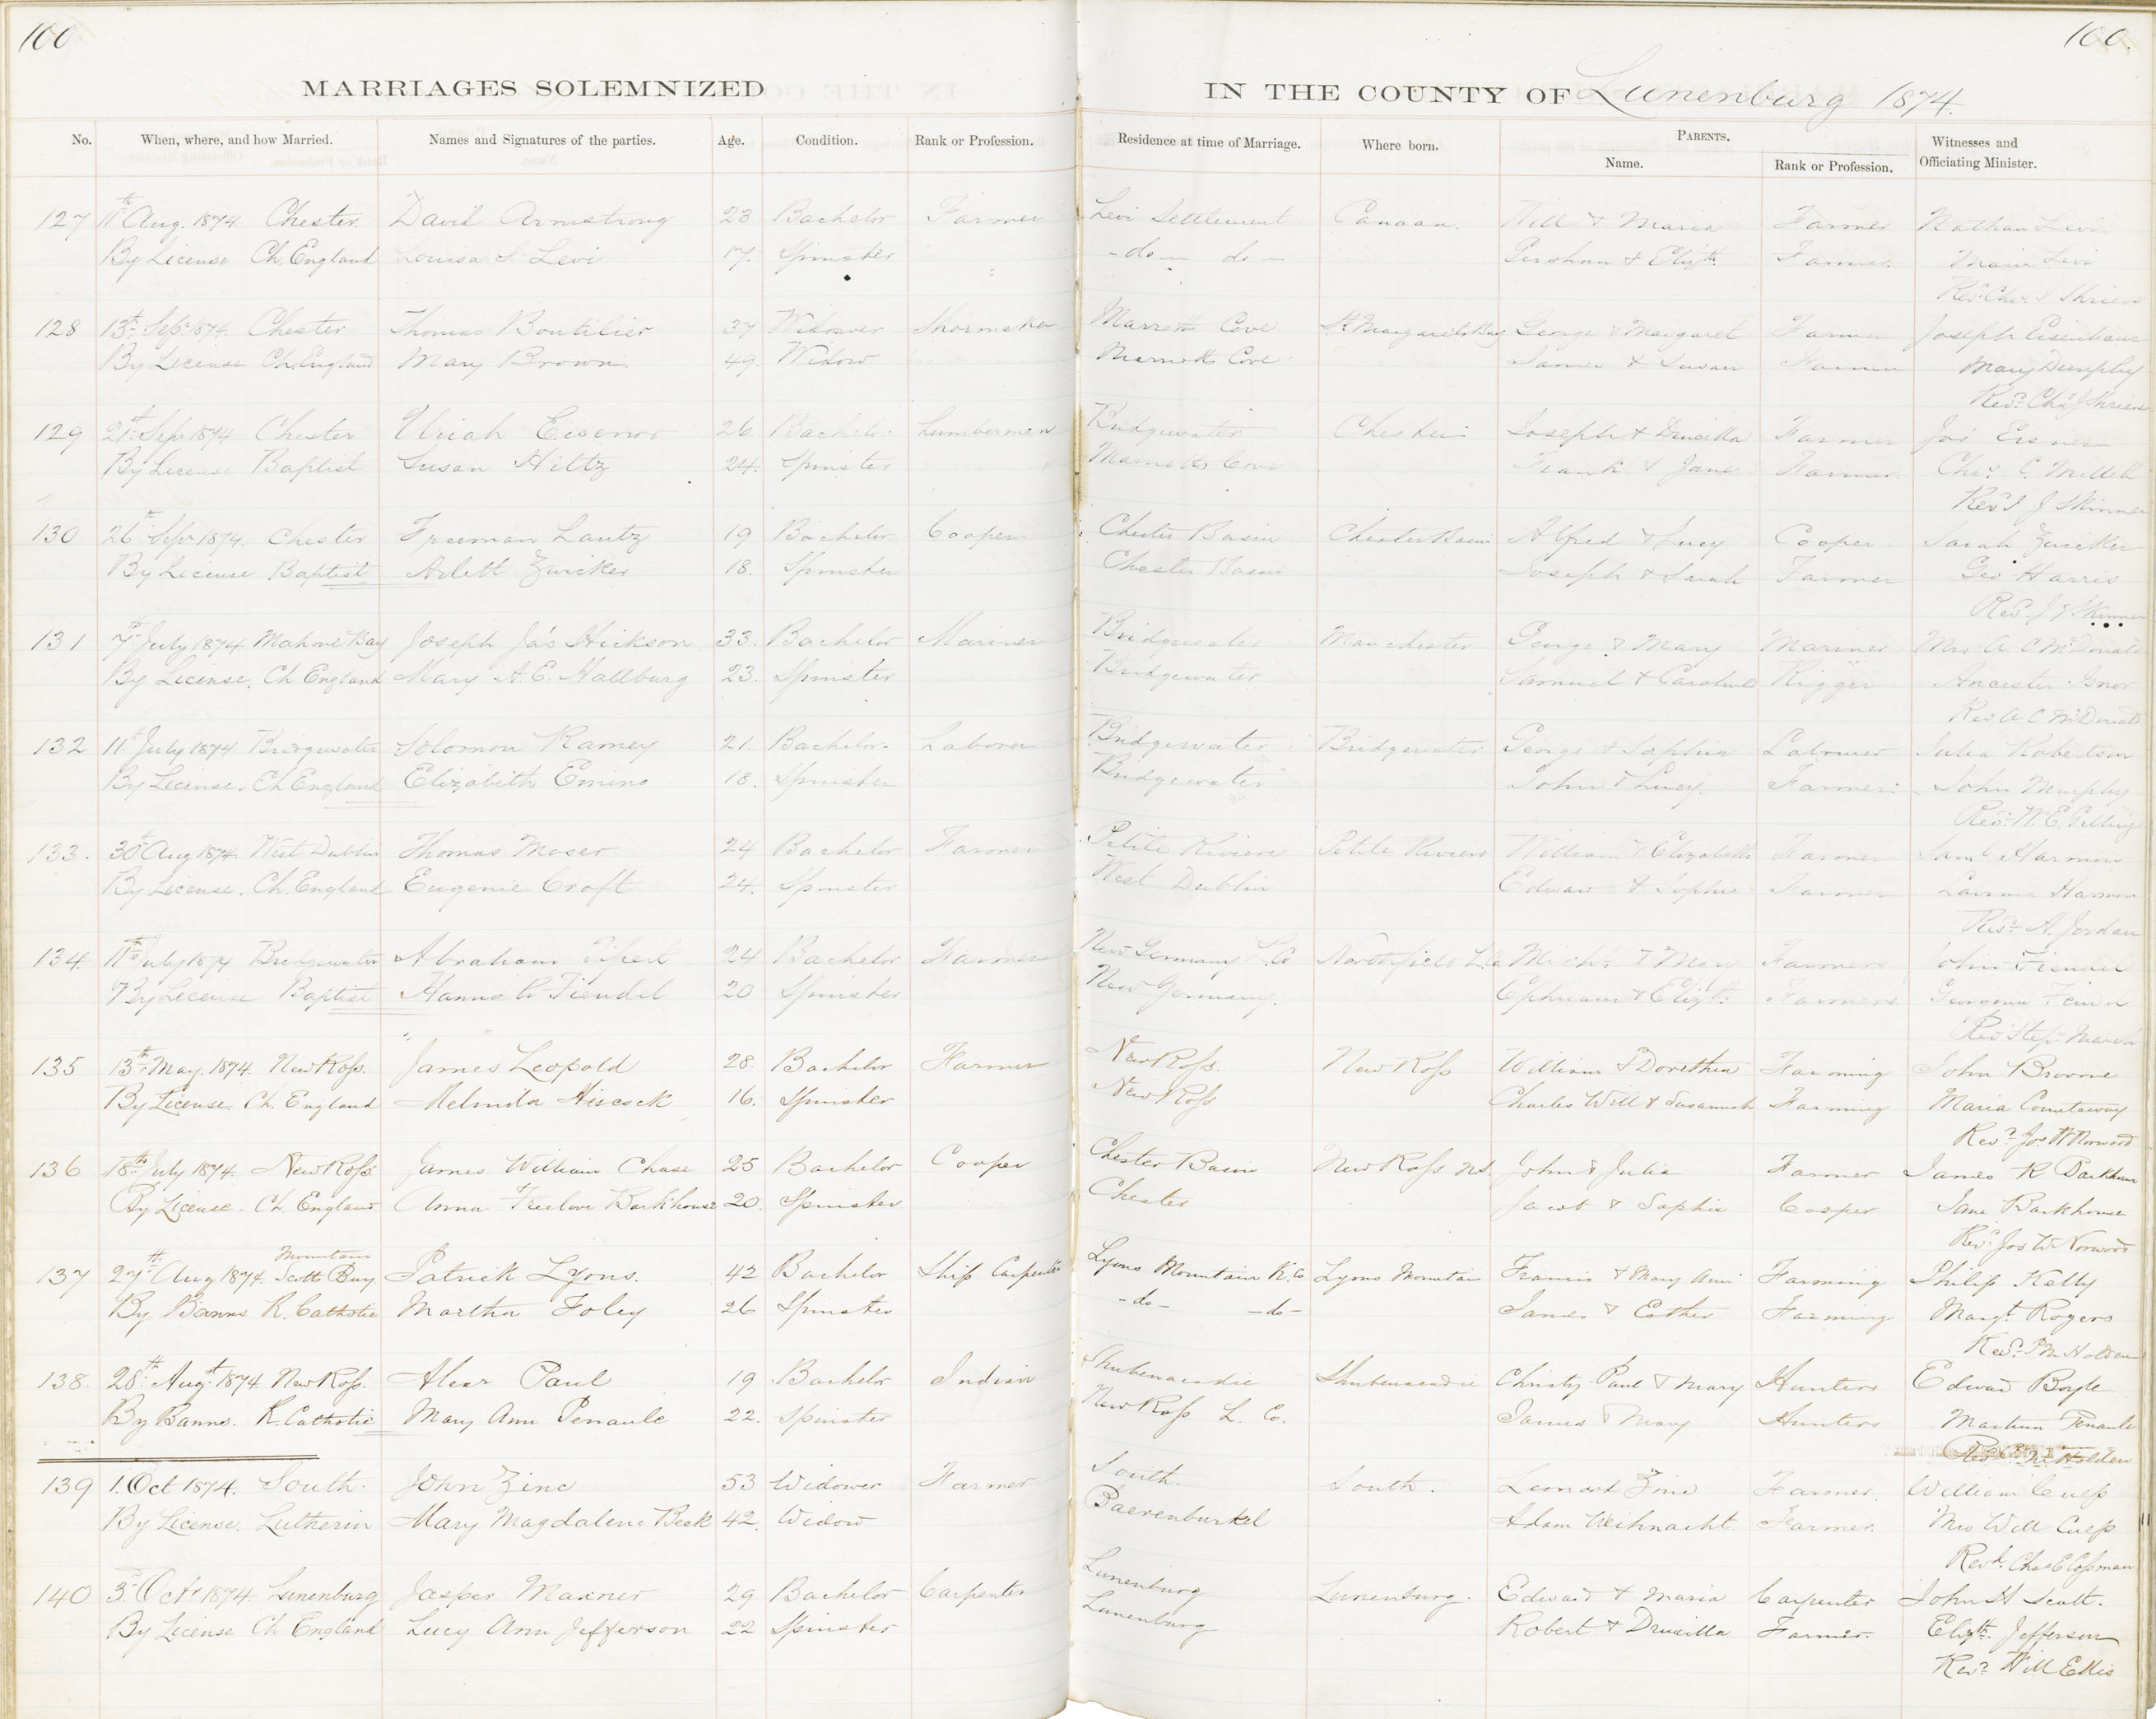 100
100.
MARRIAGES SOLEMNIZED
IN THE COUNTY OF Lunenburg 1874.
No. When, where, and how Married. Names and Signatures of the parties. Age. Condition. Rank or Profession. Residence at time of Marriage. Where born. PARENTS. Name. Rank or Profession. Witnesses and Officiating Minister.
127 11th Aug. 1874. Chester. David Armstrong 23 Bachelor Farmer Levi Settlement Canaan. Will & Maria Farmer Nathan Levi
By License Ch. England Louisa S Levi 17. Spinster -do- do- & Elizth. Farmer. Maria Levi
Revd Chas J Shrieve
128 13th Sept 1874. Chester Thomas Boutilier 37 Widower Shoemaker Marretts Cove St Margarets Bay George & Margaret Farmer Joseph Eisenhaur
By License Ch. England Mary Brown 49. Widow Marretts Cove James & Susan Farmer Mary Dumphy
Revd Chas J Shrieve
129 21st Sepr 1874 Chester Uriah Eisenor 26 Bachelor Lumberman Bridgewater Chester Joseph & Druscilla Farmer Jos Eisner
By License Baptist Susan Hiltz 24. Spinster Marretts Cove Frank & Jane Farmer Chas. C.
Revd I J Skinner
130 26th Sepr 1874. Chester Freeman Lantz 19 Bachelor Cooper Chester Basin Chester Basin Alfred & Lucy Cooper Sarah Zwicker
By License Baptist Arlett Zwicker 18. Spinster Chester Basin Joseph & Sarah Farmer Geo Harris
Revd. I J Skinner
131 7th July 1874 Mahone Bay Joseph Jas Hickson 33. Bachelor Mariner Bridgewater Manchester George & Mary Mariner Mrs A C McDonald
By License. Ch England Mary A. E. Hallburg 23. Spinster Bridgewater Samuel & Caroline Rigger
Rev A C McDonald
132 11th July 1874 Bridgewater Solomon Ramey 21. Bachelor. Laborer Bridgewater Bridgewater George & Sophia Labourer Julia Robertson
By License. Ch England Elizabeth Emino 18. Spinster Bridgewater John & Lucy. Farmer John Murphy
Revd. W. E. Gelling
133. 30th Aug 1874. West Dublin Thomas Moser 24 Bachelor Farmer Petite Riviere Petite Riviere William & Elizabeth Farmer Saml Harmon
By License. Ch. England Eugenie Croft 24. Spinster West Dublin Edward & Sophia Farmer Harmon
Revd. A. Jordan
134. 11th July 1874 Bridgewater Abraham 24 Bachelor Farmer New Germany L. Co Northfield L. Co. Michl. & Mary Farmers John Fiendel
By License Baptist Hannah Fiendel 20 Spinster New Germany. Ephraim & Elizth. Farmers Georgina
Rev Stepn March
135 13th May. 1874. New Ross. James Leopold 28. Bachelor Farmer New Ross. New Ross William & Dorethea Farming John Broome
By License. Ch. England Melinda Hiscock 16. Spinster New Ross Charles Will & Susannah Farming Maria Countaway
Revd. Jos W Norwood
136 18th July 1874. New Ross. James William Chase 25 Bachelor Cooper Chester Basin New Ross N.S. John & Julia Farmer James R
By License. Ch. England Anna Freelove Barkhouse 20. Spinster Chester Jacob & Sophia Cooper Jane Barkhouse
Revd. Jos W Norwood
Mountain
137 27th Aug 1874. Scotts Bay Patrick Lyons. 42 Bachelor Ship Carpenter Lyons Mountain K. Co Lyons Mountain Francis & Mary Ann Farming Philip Kelly
By Banns R. Catholic Martha Foley 26 Spinster -do- -do- James & Esther Farming Margt. Rogers
Revd. P M Holden
138. 28th Augt 1874. New Ross. Alexr Paul 19 Bachelor Indian Shubenacadie Shubenacadie Christy Paul & Mary Hunters Edward Boyle
By Banns. R. Catholic Mary Ann Penaule 22. Spinster New Ross L. Co. James & Mary Hunters Penaule
Revd P M Holden
139 1. Oct 1874. South. John Zinc 53 Widower Farmer South. South. Leonard Zinc Farmer. William Culp
By License. Lutherin Mary Magdalene Beck 42. Widow Baerenburkel Adam Weihnacht Farmer. Mrs Will Culp
Revd. Chas E Cossman
140 3d. Octr 1874 Lunenburg Jasper Maxner 29 Bachelor Carpenter Lunenburg Lunenburg. Edward & Maria Carpenter John H Scott.
By License Ch England Lucy Ann Jefferson 22 Spinster Lunenburg Robert & Druscilla Farmer. Elizth. Jefferson
Revd. Will Ellis